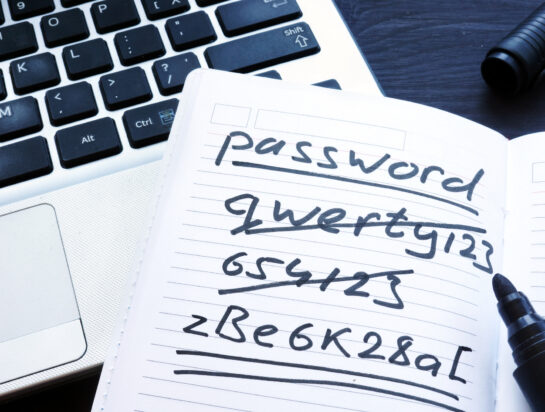 O P { [ } ]
K L : ; " '
M < , > . ? / Shift
Alt Ctrl
password
qwerty123
654123
zBe6K28a[